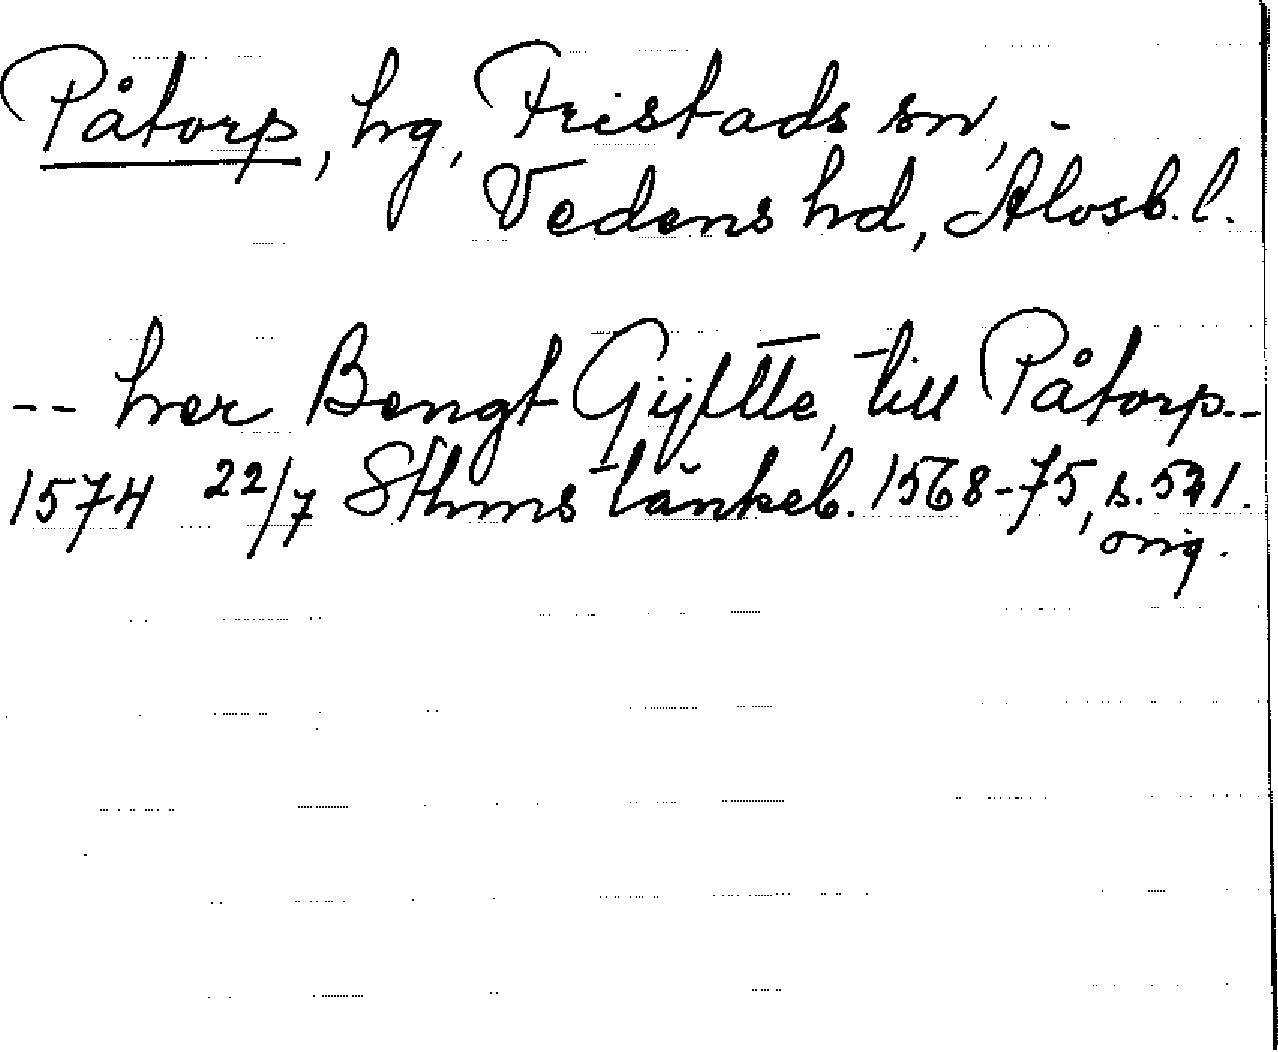 Påtorp, hg, Fristads sn,
Vedens hd, Älvsb. l.
-- her Bengt Gyltte, till Påtorp --
1574 22/7 Sthms tänkeb. 1568-75, s. 541.
orig.